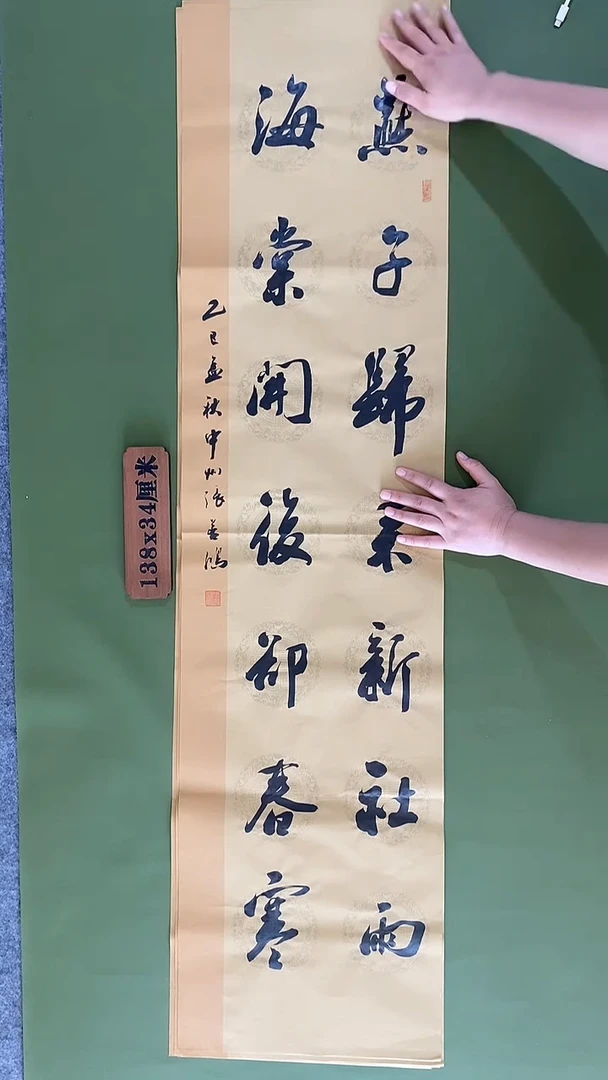 燕子歸来新社雨
海棠開後卻春寒
乙巳孟秋中州張善鴻
138x34厘米